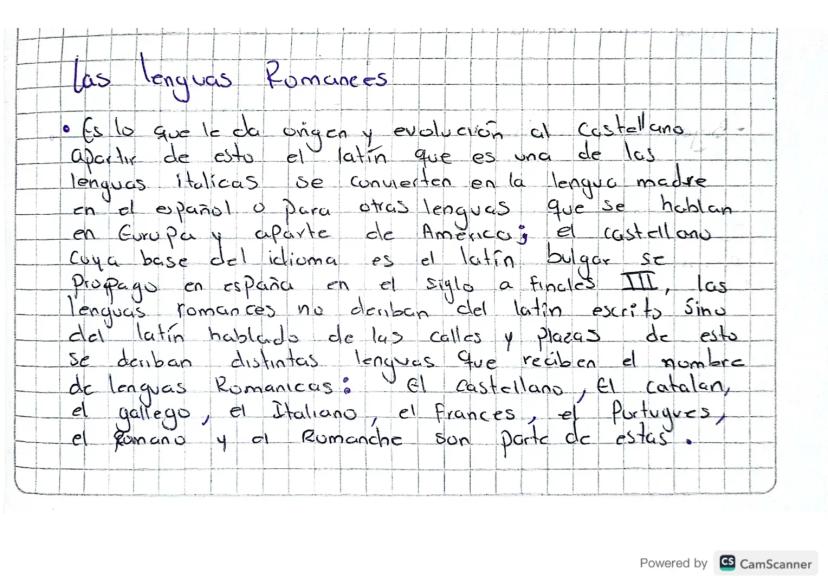 Las lenguas Romances
• Es lo que le da origen y evolución al Castellano
apartir de esto el latín que es una de las
lenguas italicas se convierten en la lengua madre
en el español o para otras lenguas que se hablan
en Europa y aparte de América; el castellano
cuya base del idioma es el latín bulgar se
Propago en españa en el siglo a finales III, las
lenguas romances no deriban del latin escrito Sino
del latín hablado de las calles y plazas de esto
se deriban distintas lenguas que reciben el nombre
de lenguas Romanicas: El castellano, El catalan,
el gallego, el Italiano, el frances, el Portugues,
el Romano y el Romanche son parte de estas.
Powered by CS CamScanner